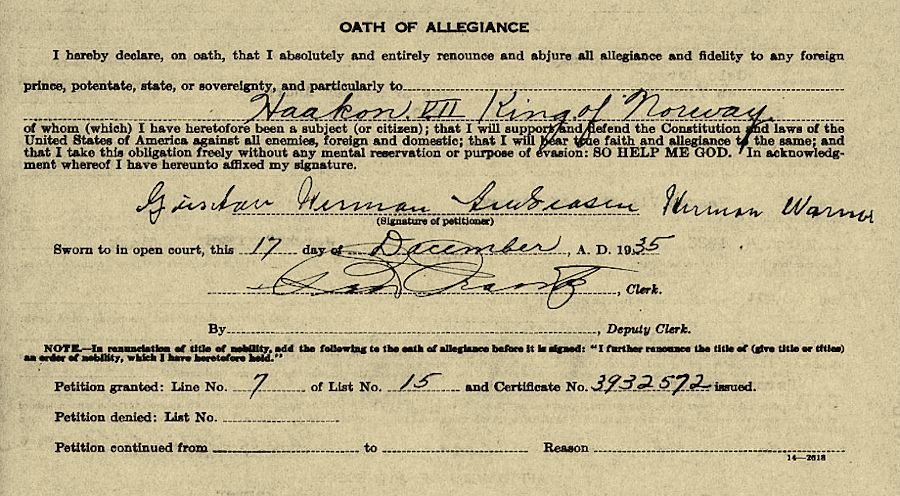 OATH OF ALLEGIANCE
I hereby declare, on oath, that I absolutely and entirely renounce and abjure all allegiance and fidelity to any foreign
prince, potentate, state, or sovereignty, and particularly to
Haakon VII King of Norway
of whom (which) I have heretofore been a subject (or citizen); that I will support and defend the Constitution and laws of the
United States of America against all enemies, foreign and domestic; that I will bear true faith and allegiance to the same; and
that I take this obligation freely without any mental reservation or purpose of evasion: SO HELP ME GOD. In acknowledg-
ment whereof I have hereunto affixed my signature.
Gustav Herman Herman
(Signature of petitioner)
Sworn to in open court, this 17 day of December, A. D. 1935
, Clerk.
By , Deputy Clerk.
NOTE.—In renunciation of title of nobility, add the following to the oath of allegiance before it is signed: "I further renounce the title of (give title or titles)
an order of nobility, which I have heretofore held."
Petition granted: Line No. 7 of List No. 15 and Certificate No. 3932572 issued.
Petition denied: List No.
Petition continued from to Reason
14—2618